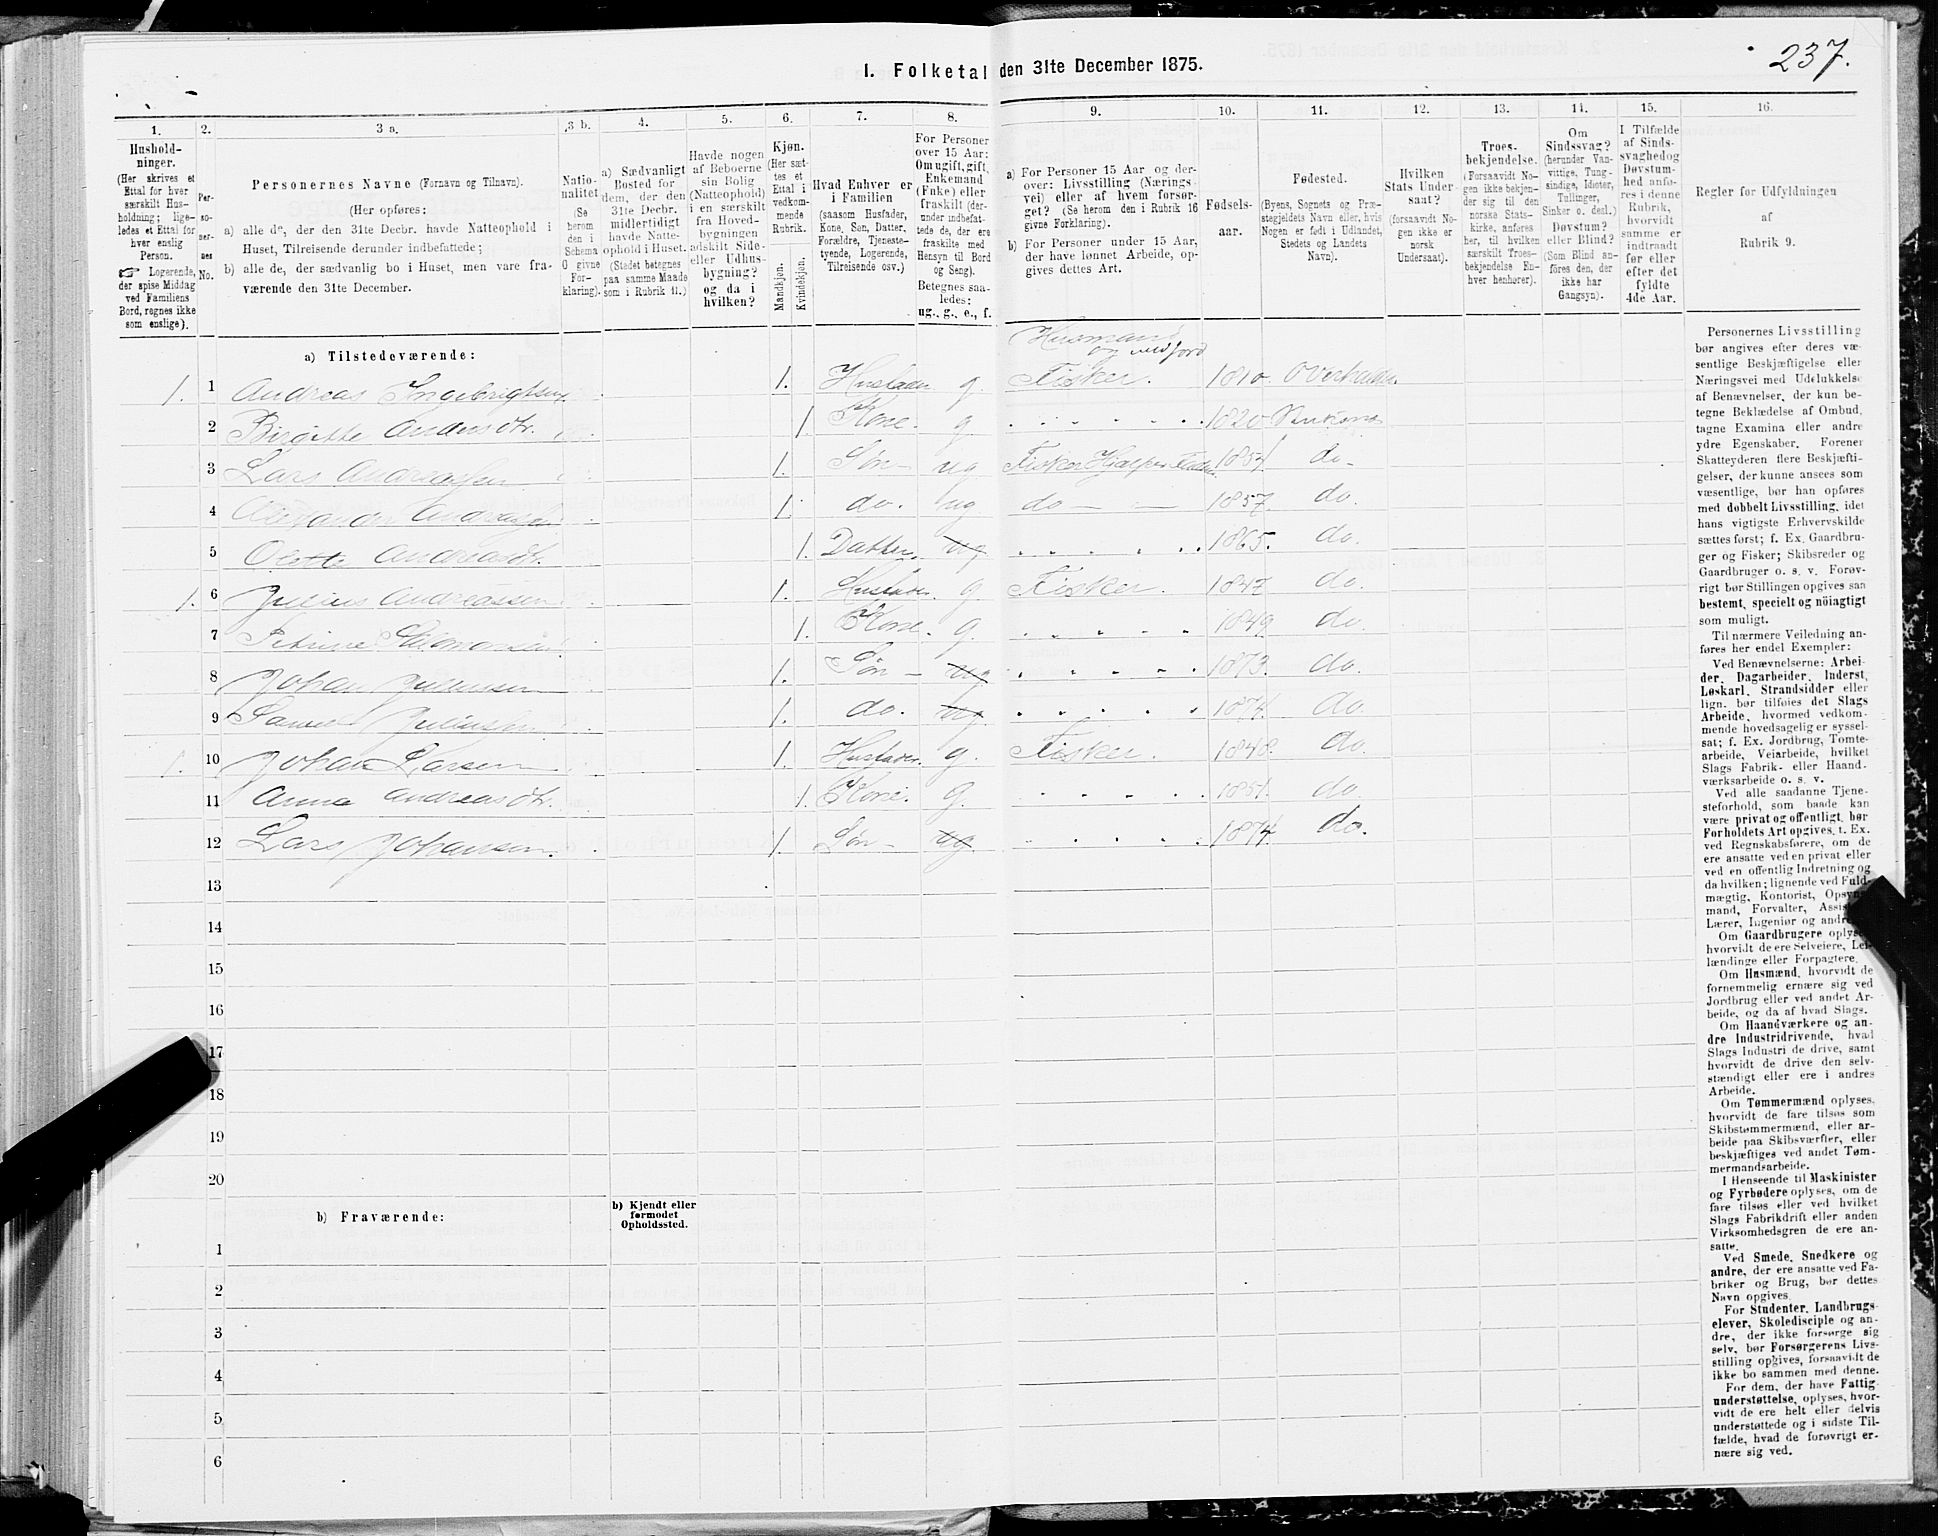 I. Folketal den 31te December 1875.
237.
1.
Hushold-
ninger.
(Her skrives et
Ettal for hver
særskilt Hus-
holdning; lige-
ledes et Ettal for
hver enslig
Person.
☞ Logerende,
der spise Middag
ved Familiens
Bord, regnes ikke
som enslige).
2.
Per-
so-
ner-
nes
No.
3 a.
Personernes Navne (Fornavn og Tilnavn).
(Her opføres:
a) alle de, der den 31te Decbr. havde Natteophold i
Huset, Tilreisende derunder indbefattede;
b) alle de, der sædvanlig bo i Huset, men vare fra-
værende den 31te December.
3 b.
Natio-
nalitet
(Se
herom
den i
Schema
O givne
For-
klaring).
4.
a) Sædvanligt
Bosted for
dem, der den
31te Decbr.
midlertidigt
havde Natte-
ophold i Huset.
(Stedet betegnes
paa samme Maade
som i Rubrik 11.)
5.
Havde nogen
af Beboerne
sin Bolig
(Natteophold)
i en særskilt
fra Hoved-
bygningen
adskilt Side-
eller Udhus-
bygning?
og da i
hvilken?
6.
Kjøn.
(Her sæt-
tes et
Ettal i
vedkom-
mende
Rubrik.
Mandkjøn.
Kvindekjøn.
7.
Hvad Enhver er
i Familien
(saasom Husfader,
Kone, Søn, Datter,
Forældre, Tjeneste-
tyende, Logerende,
Tilreisende osv.)
8.
For Personer
over 15 Aar:
Om ugift, gift,
Enkemand
(Enke) eller
fraskilt (der-
under indbefat-
tede de, der ere
fraskilte med
Hensyn til Bord
og Seng).
Betegnes saa-
ledes:
ug., g., e., f.
9.
a) For Personer 15 Aar og der-
over: Livsstilling (Nærings-
vei) eller af hvem forsør-
get? (Se herom den i Rubrik 16
givne Forklaring).
b) For Personer under 15 Aar,
der have lønnet Arbeide, op-
gives dettes Art.
10.
Fødsels-
aar.
11.
Fødested.
(Byens, Sognets og Præ-
stegjeldets Navn eller, hvis
Nogen er født i Udlandet,
Stedets og Landets
Navn).
12.
Hvilken
Stats Under-
saat?
(forsaavidt No-
gen ikke er
norsk
Undersaat).
13.
Troes-
bekjendelse.
(Forsaavidt No-
gen ikke bekjen-
der sig til den
norske Stats-
kirke, anføres
her, til hvilken
særskilt Troes-
bekjendelse En-
hver henhører).
14.
Om
Sindssvag?
(herunder Van-
vittige, Tung-
sindige, Idioter,
Tullinger,
Sinker o. desl.)
Døvstum?
eller Blind?
(Som Blind an-
føres den, der
ikke har
Gangsyn).
15.
I Tilfælde
af Sinds-
svaghed og
Døvstum-
hed anfø-
res i denne
Rubrik,
hvorvidt
samme er
indtraadt
før eller
efter det
fyldte
4de Aar.
16.
Regler for Udfyldningen
af
Rubrik 9.
a) Tilstedeværende:
Husmand
og
1. 1 Andreas Ingebrigtsen 1. Husfader g. Fisker. 1810. Overhalden
2 Birgitte Andersdtr. 1. Kone. g. 1820
3 Lars Andreassen 1. Søn ug Fisker Hjælper Faderen 1854 do
4 Alexander Andreassen 1. do. ug do 1857. do.
5 Andreasdtr. 1. Datter. ug 1865. do.
1. 6 Julius Andreassen 1. Husfader. g. Fisker. 1847 do.
7 Petrine 1. Kone. g. 1849 do.
8 Johan Juliussen 1. Søn ug 1873. do.
9 Juliussen 1. do. ug 1874. do.
1. 10 Johan Larsen 1. Husfader. g. Fisker. 1848. do.
11 Anna Andreasdtr. 1. Kone. g. 1851. do.
12 Lars Johansen. 1. Søn ug 1874. do.
13
14
15
16
17
18
19
20
b) Fraværende:
b) Kjendt eller
formodet
Opholdssted.
1
2
3
4
5
6
Personernes Livsstilling
bør angives efter deres væ-
sentlige Beskjæftigelse eller
Næringsvei med Udelukkelse
af Benævnelser, der kun be-
tegne Beklædelse af Ombud,
tagne Examina eller andre
ydre Egenskaber. Forener
Skatteyderen flere Beskjæfti-
gelser, der kunne ansees som
væsentlige, bør han opføres
med dobbelt Livsstilling, idet
hans vigtigste Erhvervskilde
sættes først; f. Ex. Gaardbru-
ger og Fisker; Skibsreder og
Gaardbruger o. s. v. Forøv-
rigt bør Stillingen opgives saa
bestemt, specielt og nöiagtigt
som muligt.
Til nærmere Veiledning an-
føres her endel Exempler:
Ved Benævnelserne: Arbei-
der, Dagarbeider, Inderst,
Løskarl, Strandsidder eller
lign. bør tilføies det Slags
Arbeide, hvormed vedkom-
mende hovedsagelig er syssel-
sat; f. Ex. Jordbrug, Tomte-
arbeide, Veiarbeide, hvilket
Slags Fabrik- eller Haand-
værksarbeide o. s. v.
Ved alle saadanne Tjene-
steforhold, som baade kan
være privat og offentligt, bør
Forholdets Art opgives, t. Ex.
ved Regnskabsførere, om de
ere ansatte ved en privat eller
ved en offentlig Indretning og
da hvilken; lignende ved Fuld-
mægtig, Kontorist, Opsyns-
mand, Forvalter,
Lærer, Ingeniør og
Om Gaardbrugere oplyses
hvorvidt de ere Selveiere, Lei-
lændinge eller Forpagtere.
Om Husmænd, hvorvidt de
fornemmelig ernære sig ved
Jordbrug eller ved andet Ar-
beide, og da af hvad Slags.
Om Haandværkere og an-
dre Industridrivende, hvad
Slags Industri de drive, samt
hvorvidt de drive den selv-
stændigt eller ere i andres
Arbeide.
Om Tømmermænd oplyses,
hvorvidt de fare tilsøs som
Skibstømmermænd, eller ar-
beide paa Skibsværfter, eller
beskjæftiges ved andet Tøm-
mermandsarbeide.
I Henseende til Maskinister
og Fyrbødere oplyses, om de
fare tilsøs eller ved hvilket
Slags Fabrikdrift eller anden
Virksomhedsgren de ere an-
satte.
Ved Smede, Snedkere og
andre, der ere ansatte ved Fa-
briker og Brug, bør dettes
Navn opgives.
For Studenter, Landbrugs-
elever, Skoledisciple og an-
dre, der ikke forsørge sig
selv, bør Forsørgerens Livs-
stilling opgives, forsaavidt de
ikke bo sammen med denne.
For dem, der have Fattig-
understøttelse, oplyses, hvor-
vidt de ere helt eller delvis
understøttede og i sidste Til-
fælde, hvad de forøvrigt er-
nære sig ved.